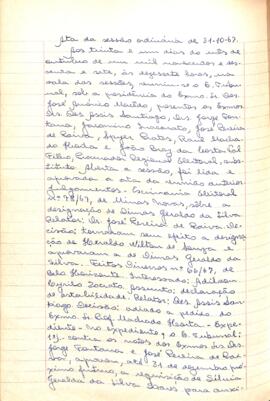 Ata da sessão ordinária de 31-10-67.
Aos trinta e um dias do mês de
outubro de um mil novecentos e ses-
senta e sete, às dezessete horas, na
sala das sessões, reuniu-se o E. Tribu-
nal, sob a presidência do Exmo. Sr. Des.
José Américo Macêdo, presentes os Exmos.
Srs. Drs. Assis Santiago, Drs. Jorge Fon-
tana, Jacomino Inacarato, José Pereira
de Paiva, Raul Macha-
do Horta e João Braz da Costa Val
Filho, Procurador Regional Eleitoral, subs-
tituto. Aberta a sessão, foi lida e
aprovada a ata da reunião anterior.
Julgamentos. Escrivania Eleitoral
nº 98/67, de Minas Novas, sôbre a
designação de Dimas Geraldo da Silva.
Relator: Dr. José Pereira de Paiva. De-
cisão: tornaram sem efeito a designa-
ção de Heraldo Wilton de Souza e
aprovaram a de Dimas Geraldo da
Silva. Feitos Diversos nº 66/67, de
Belo Horizonte. Interessado: Adilson
assunto: declaração
de estabilidade. Relator: Des. Assis San-
tiago. Decisão: adiado a pedido do
Exmo. Sr. Prof. Machado Horta. Expe-
diente. No expediente, o E. Tribunal:
1) contra os votos dos Exmos. Srs. Drs.
Jorge Fontana e José Pereira de Pai-
va, aprovou, até 31 de dezembro pró-
ximo futuro, a requisição de Silvia
Geralda da Silva Soares para auxi-